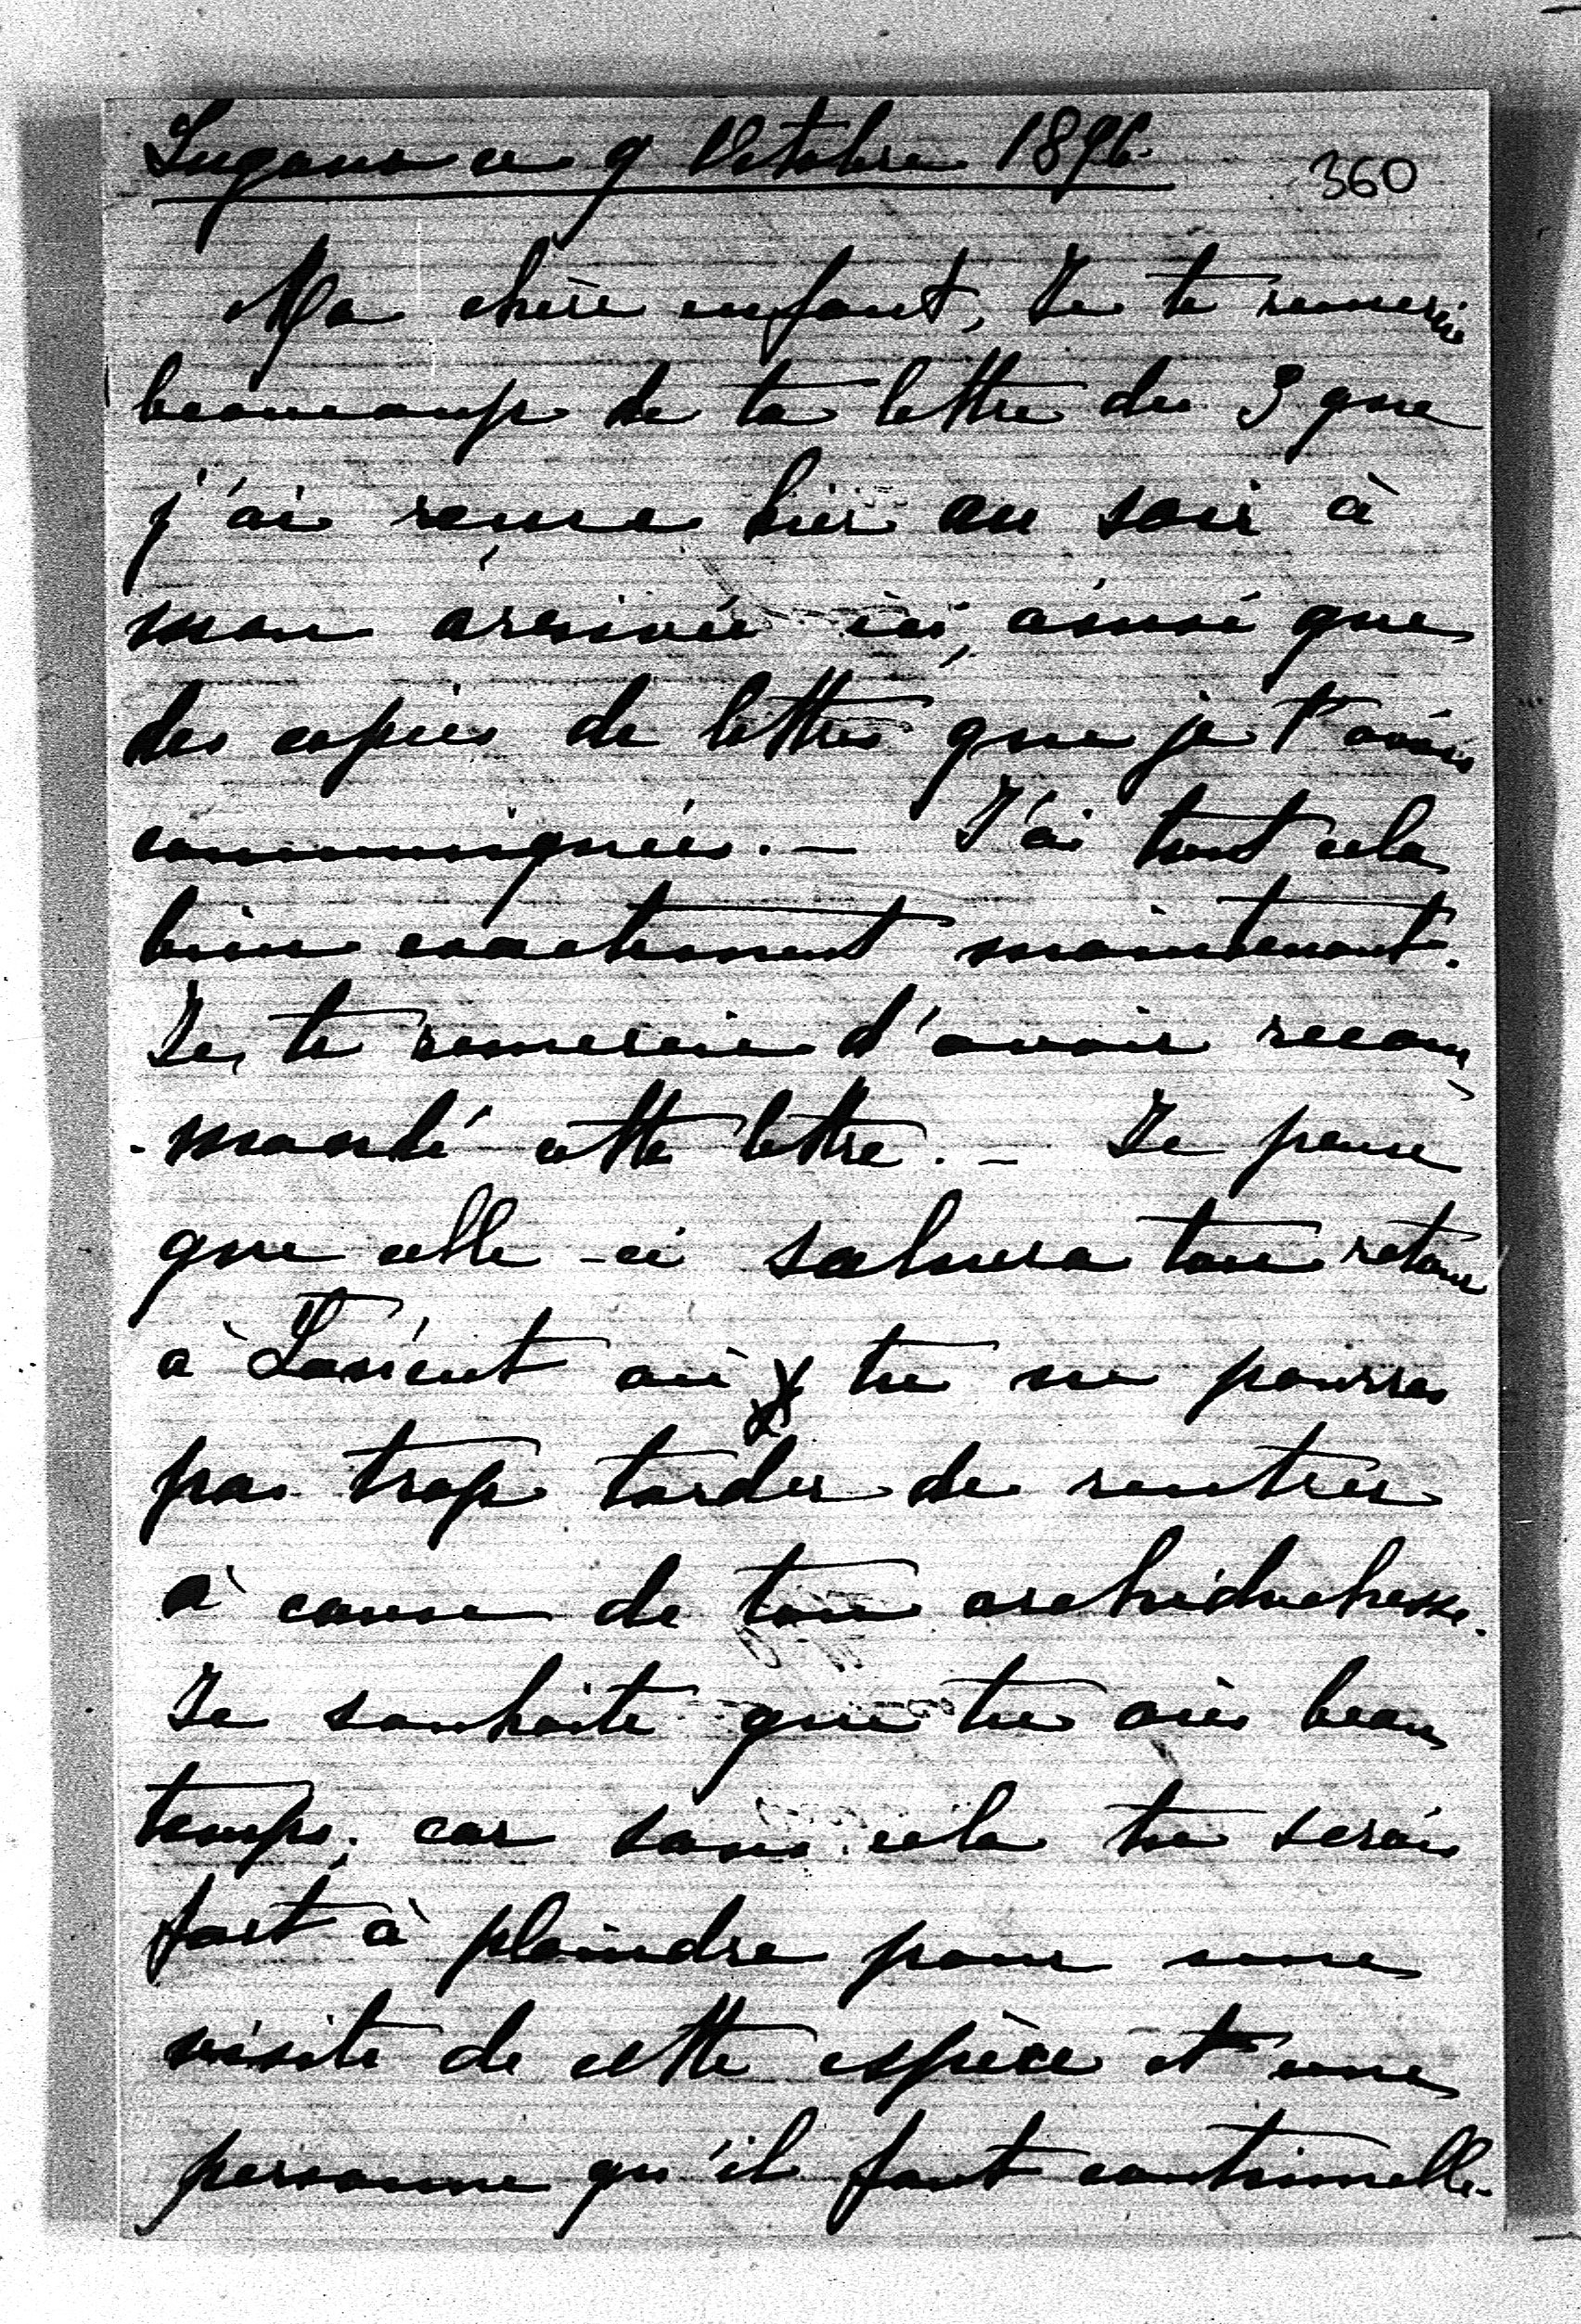 Lugano ce 9 Octobre 1896.
360
Ma chère enfant, Je te remercie
beaucoup de ta lettre du 3 que
j'ai reçue hier au soir à
mon arrivée ici, ainsi que
des copies de lettres que je t'avais
communiquées. — J'ai tout cela
bien exactement maintenant.
Je te remercie d'avoir recom
-mandé cette lettre. — Je pense
que celle-ci saluera ton retour
à Lorient où tu ne pourras
pas trop tarder de rentrer
à cause de ton archiduchesse.
Je souhaite que tu aies beau
temps, car sans cela tu serais
fort à plaindre pour une
visite de cette espèce et une
personne qu'il faut continuelle-